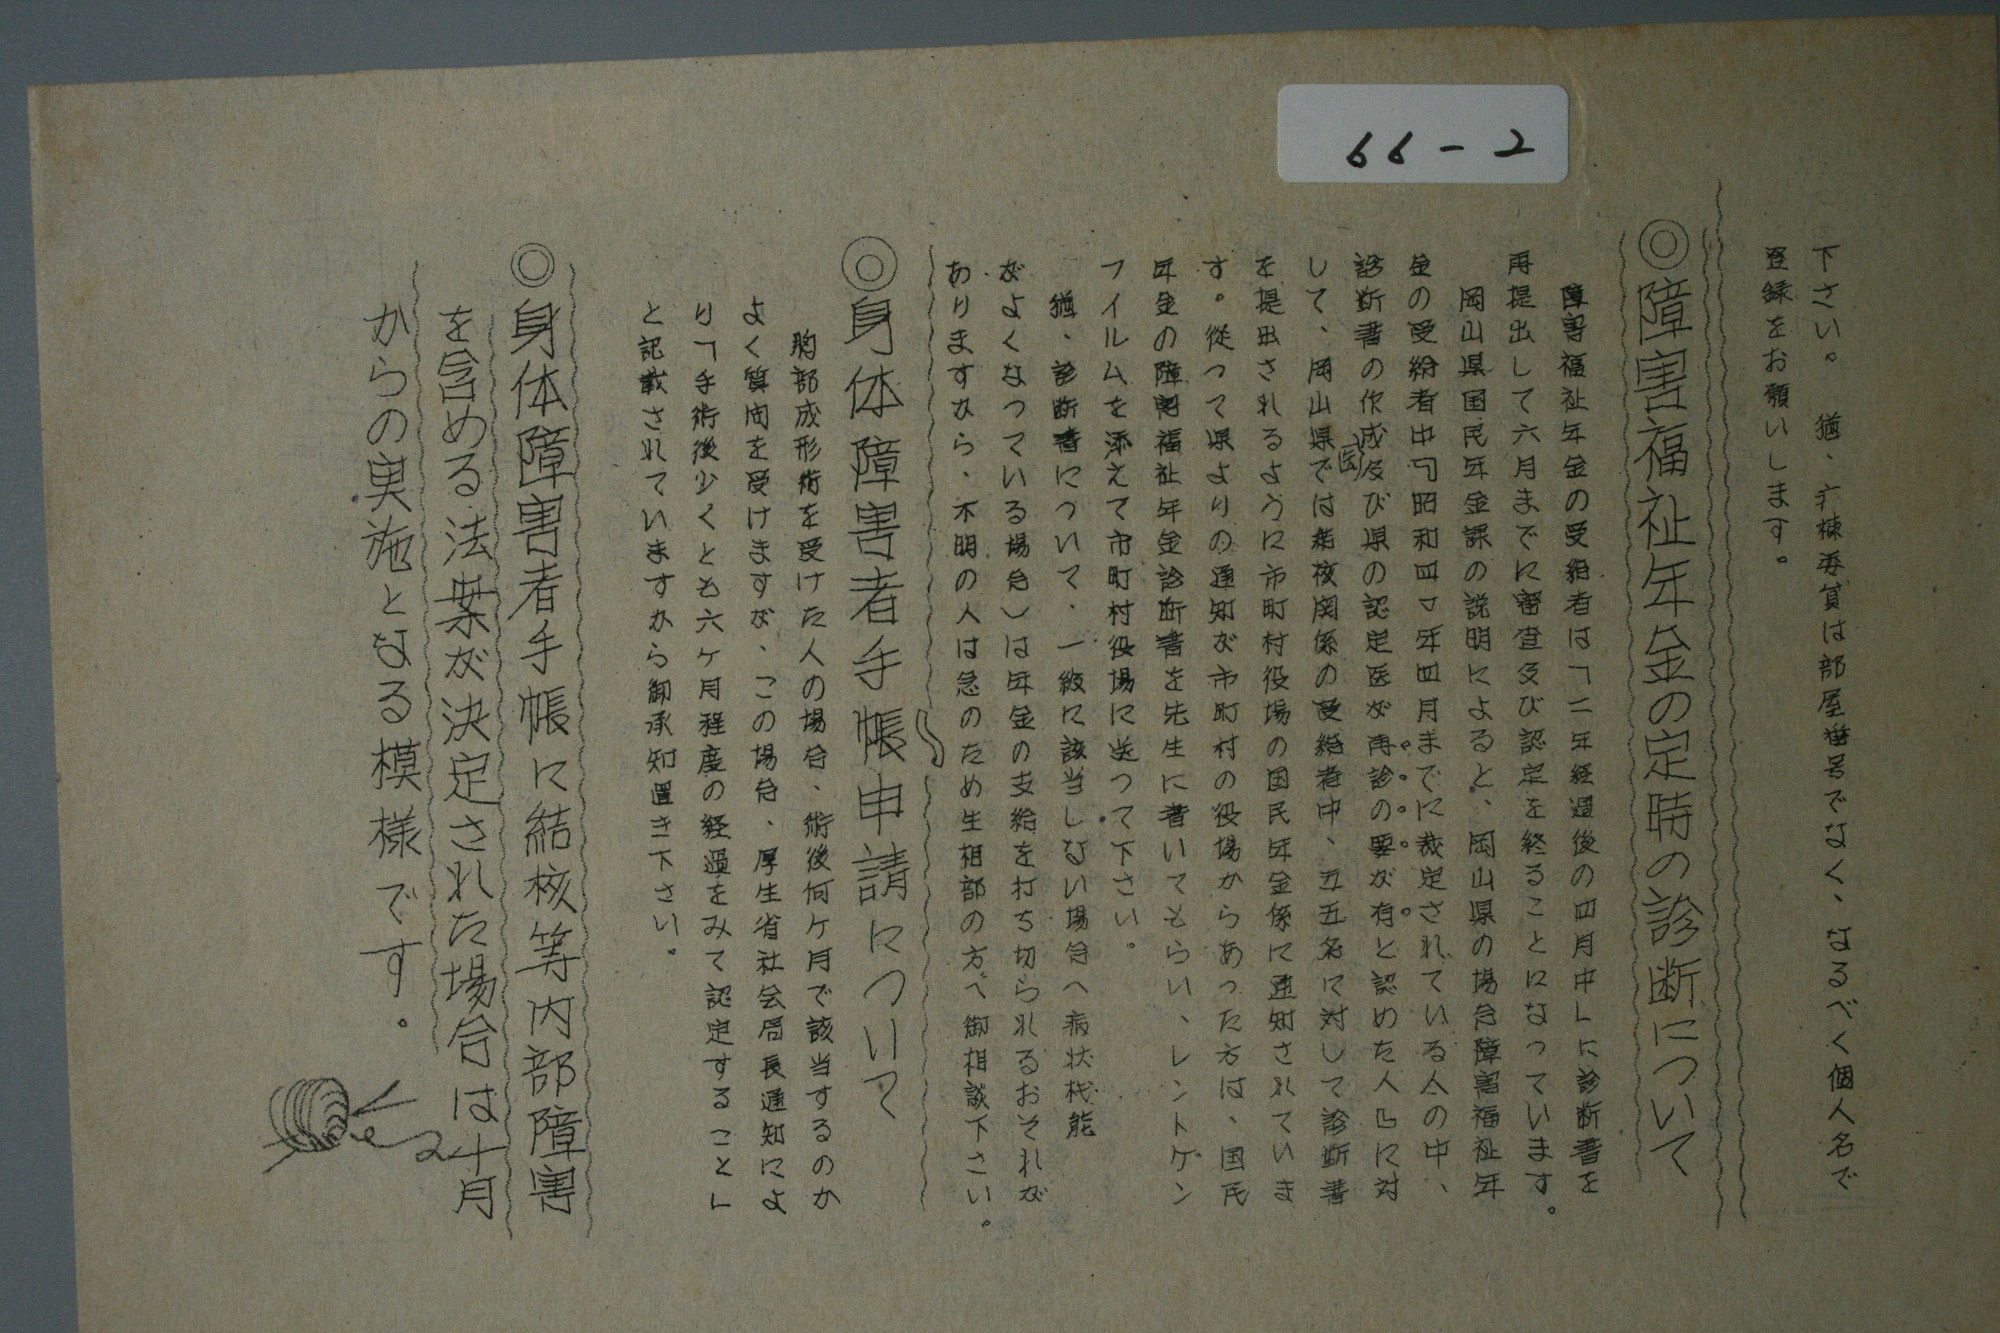 66-2
下さい。 猶、疒棟委員は部屋番号でなく、なるべく個人名で
登録をお願いします。
◎障害福祉年金の定時の診断について
障害福祉年金の受給者は「二年経過後の四月中」に診断書を
再提出して六月までに審査及び認定を終ることになっています。
岡山県国民年金課の説明によると、岡山県の場合障害福祉年
金の受給者中『昭和四〇年四月までに裁定されている人の中、
診断書の作成医及び県の認定医が再診の要が有と認めた人』に対
して、岡山県では結核関係の受給者中、五五名に対して診断書
を提出されるように市町村役場の国民年金係に通知されていま
す。従つて県よりの通知が市町村の役場からあった方は、国民
年金の障害福祉年金診断書を先生に書いてもらい、レントゲン
フイルムを添えて市町村役場に送つて下さい。
猶、診断書について、一級に該当しない場合(病状機能
がよくなつている場合)は年金の支給を打ち切られるおそれが
ありますから、不明の人は急のため生相部の方へ御相談下さい。
◎身体障害者手帳申請について
胸部成形術を受けた人の場合、術後何ケ月で該当するのか
よく質問を受けますが、この場合、厚生省社会局長通知によ
り「手術後少くとも六ケ月程度の経過をみて認定すること」
と記載されていますから御承知置き下さい。
◎身体障害者手帳に結核等内部障害
を含める法案が決定された場合は十月
からの実施となる模様です。